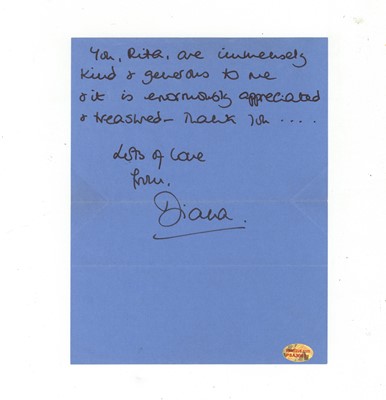 You, Rita, are immensely
kind & generous to me
& it is enormously appreciated
& treasured – Thank You ....
Lots of love
from,
Diana.